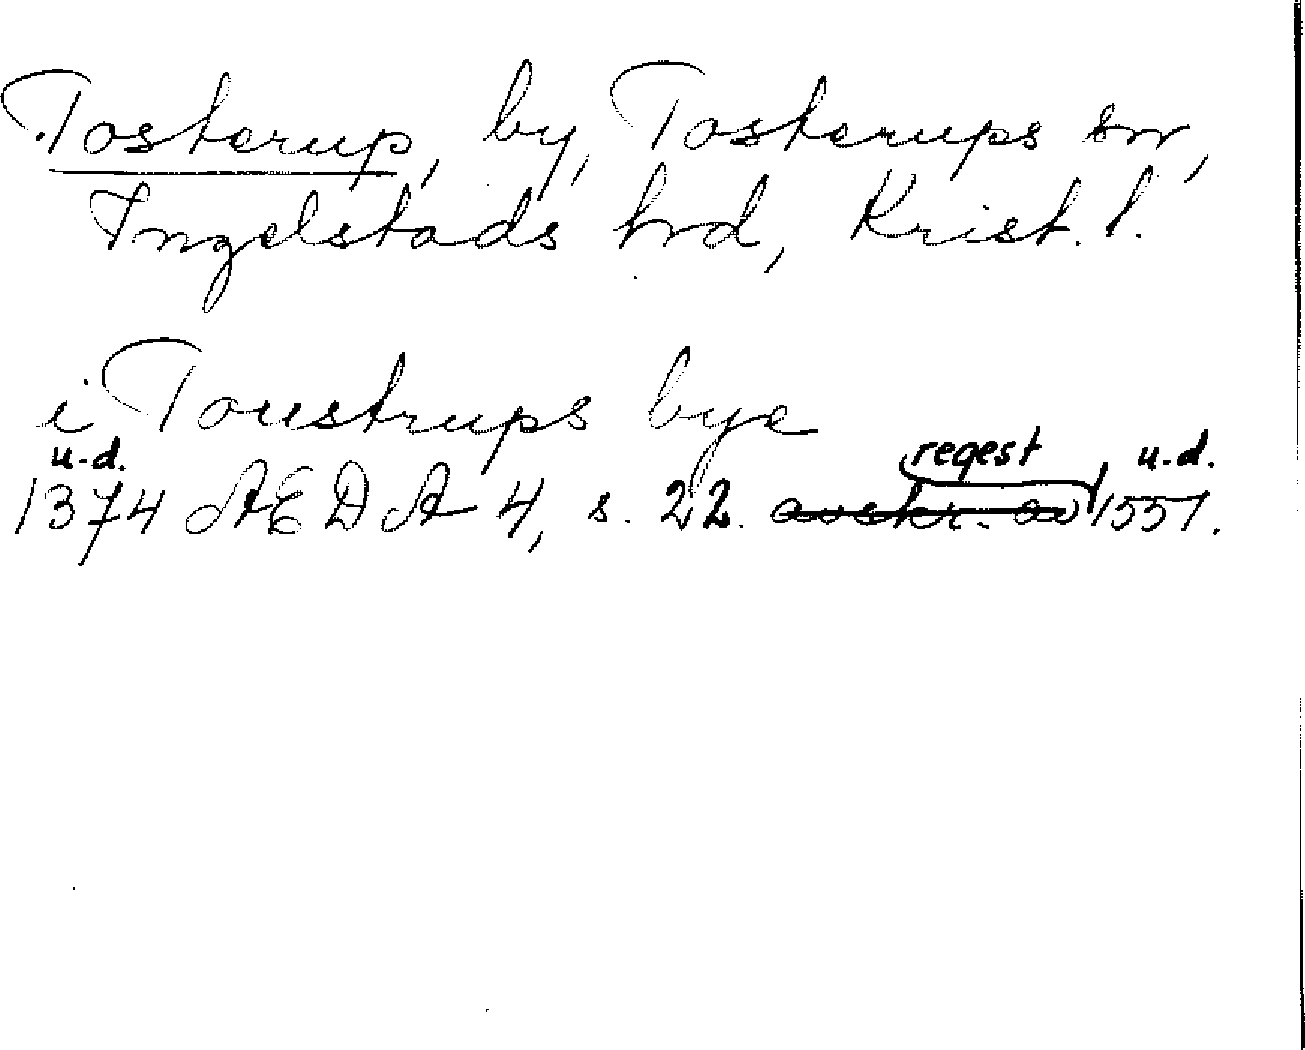 Tosterup, by, Tosterups sn,
Ingelstads hrd, Krist. l.
i Toustrups bye
u.d. regest u.d.
1374 AEDA 4, s. 22. avskr. av 1551.